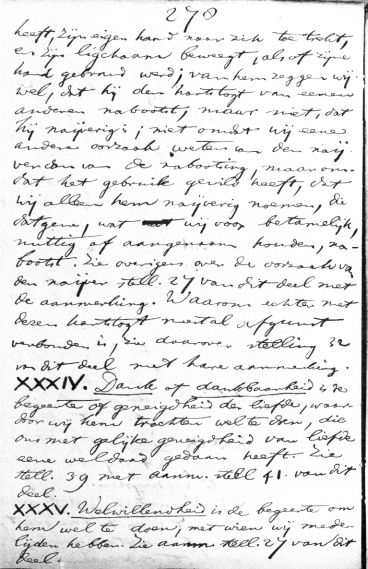 278
heeft, zijn eigen hand naar zich toe trekt,
en zijn ligchaam beweegt, als of zijne
hand gebrand werd; van hem zeggen wij
wel, dat hij den hartstogt van eenen
anderen nabootst, maar niet, dat
hij naijverig is; niet omdat wij eene
andere oorzaak weten van den naij
ver dan van de nabootsing, maar om-
dat het gebruik gewild heeft, dat
wij alleen hem naijverig noemen, die
datgene, wat wij voor betamelijk,
nuttig of aangenaam houden, na-
bootst. Zie overigens over de oorzaak van
den naijver stell. 27 van dit deel met
de aanmerking. Waarom echter met
dezen hartstogt meestal afgunst
verbonden is, zie daarover stelling 32
van dit deel met hare aanmerking.
XXXIV. Dank of dankbaarheid is de
begeerte of geneigdheid der liefde, waar-
door wij hem trachten wel te doen, die
ons met gelijke geneigdheid van liefde
eene weldaad gedaan heeft. Zie
stell. 39 met aanm. stell 41. van dit
deel.
XXXV. Welwillendheid is de begeerte om
hem wel te doen, met wien wij mede-
lijden hebben. Zie aanm stell. 27 van dit
deel.